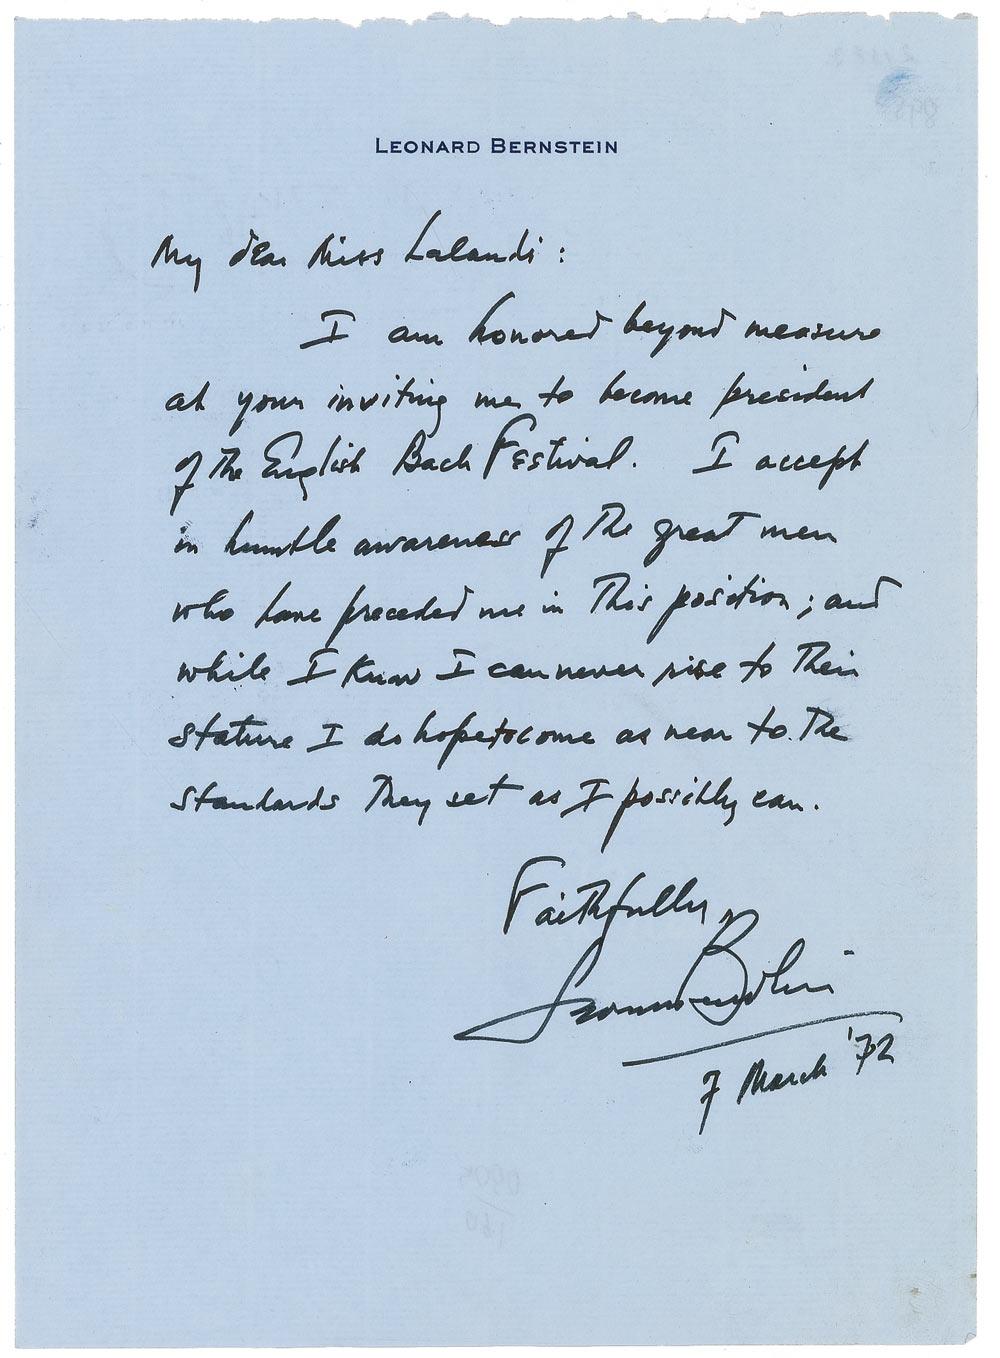 LEONARD BERNSTEIN
My dear Miss Lalandi :
I am honored beyond measure
at your inviting me to become president
of the English Bach Festival. I accept
in humble awareness of the great men
who have preceded me in this position ; and
while I know I can never rise to their
stature I do hope to come as near to the
standards they set as I possibly can.
Faithfully,
Leonard Bernstein
7 March '72